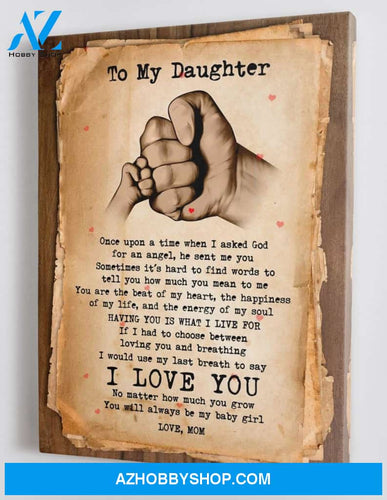 AZ
HOBBY SHOP
To My Daughter
Once upon a time when I asked God
for an angel, he sent me you
Sometimes it's hard to find words to
tell you how much you mean to me
You are the beat of my heart, the happiness
of my life, and the energy of my soul
HAVING YOU IS WHAT I LIVE FOR
If I had to choose between
loving you and breathing
I would use my last breath to say
I LOVE YOU
No matter how much you grow
You will always be my baby girl
LOVE, MOM
AZHOBBYSHOP.COM